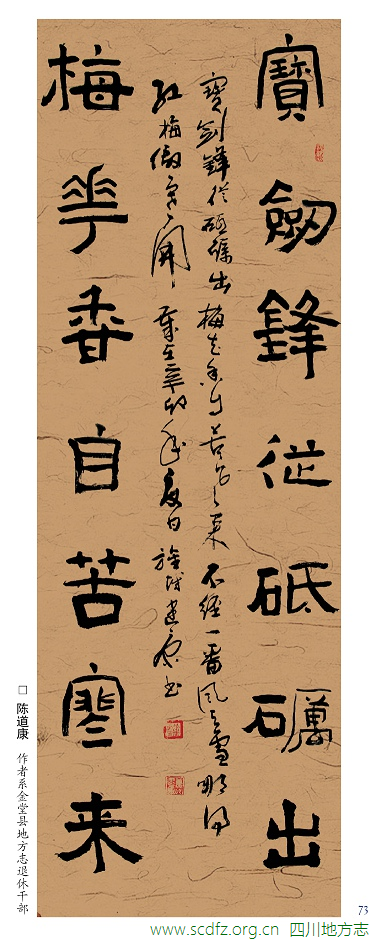 寶劒鋒從砥礪出
寶劍鋒從砥礪出梅花香自苦寒来不經一番風雪哪得
紅梅傲雪開 歲在辛卯年夏日 道康书
梅花香自苦寒来
□ 陈道康 作者系金堂县地方志退休干部
73
www.scdfz.org.cn 四川地方志